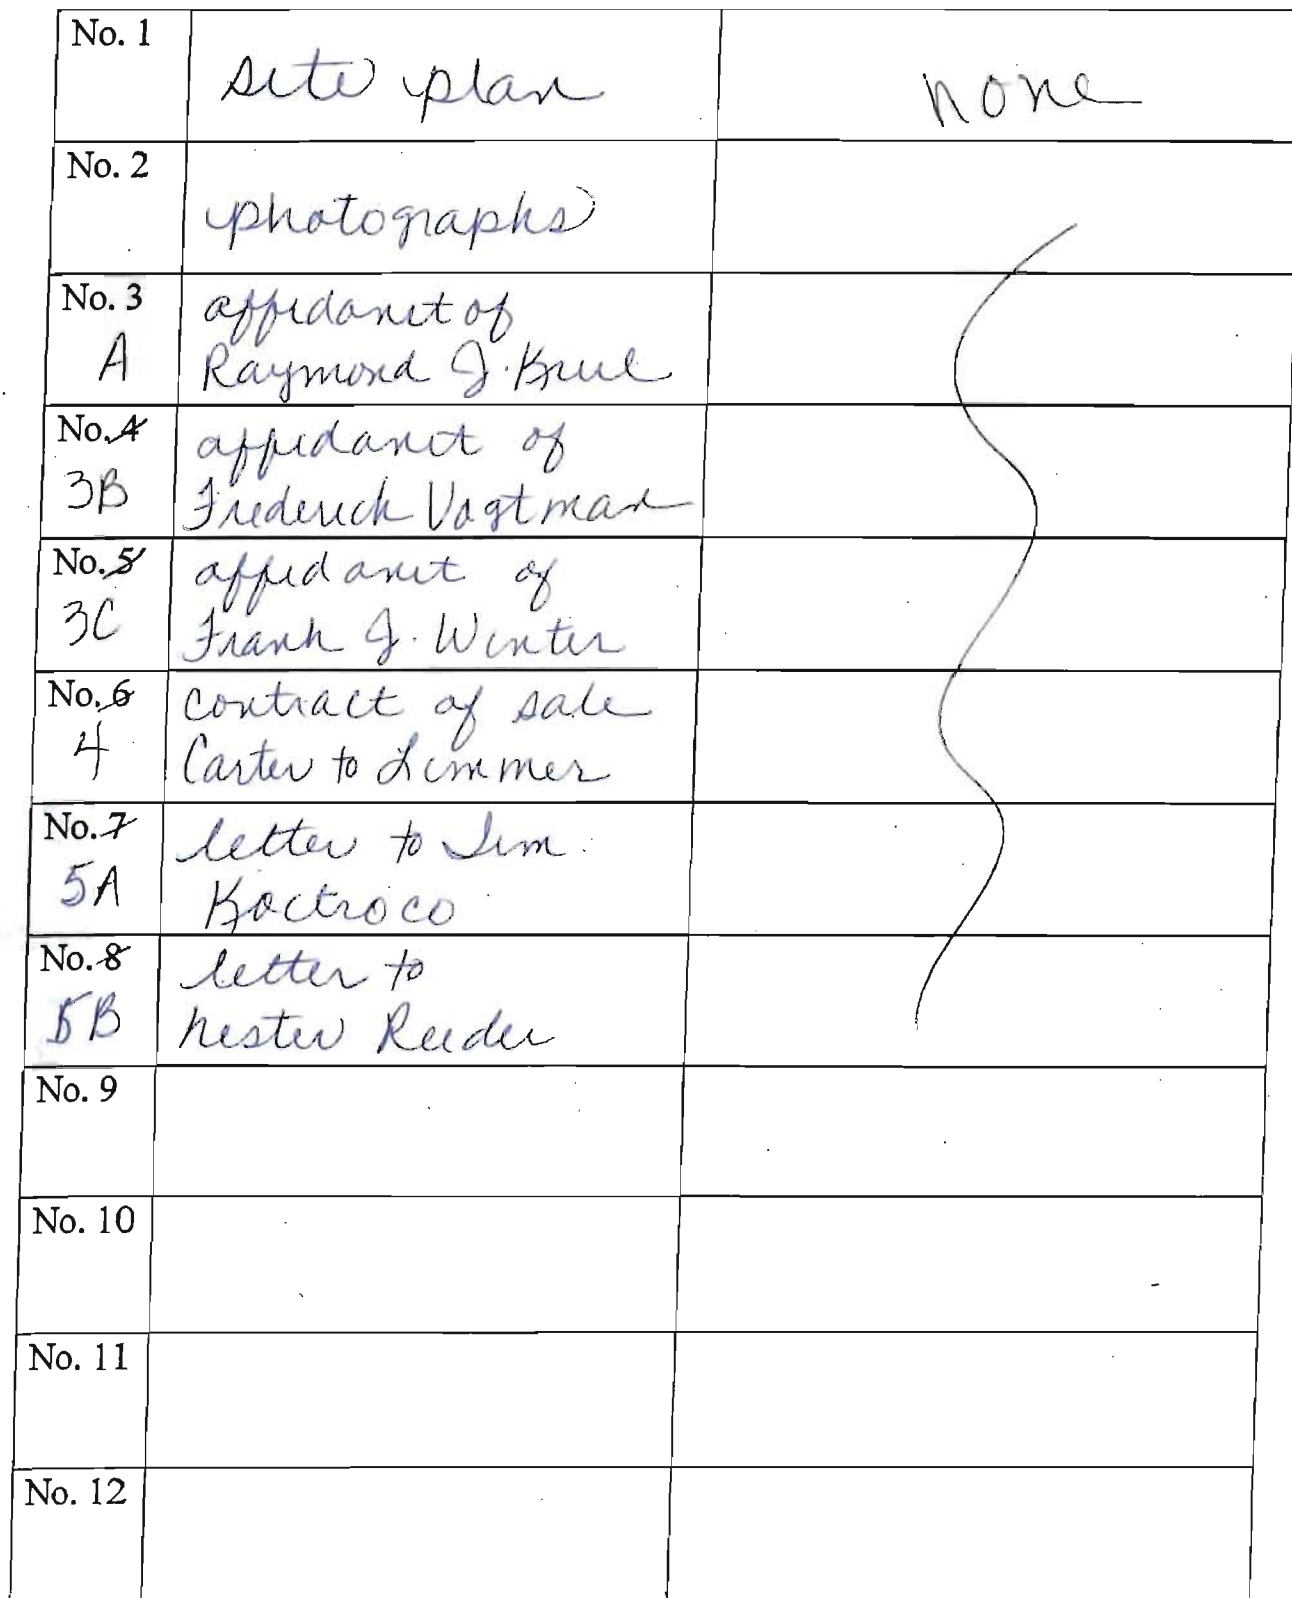 No. 1
site plan
none
No. 2
photographs
No. 3
A
affidavit of
Raymond J.
No. 4
3B
affidavit of
Frederick Vogtman
No. 5
3C
affidavit of
Frank J. Winter
No. 6
4
contract of sale
Carter to Limmer
No. 7
5A
letter to
No. 8
5B
letter to
Reeder
No. 9
No. 10
No. 11
No. 12